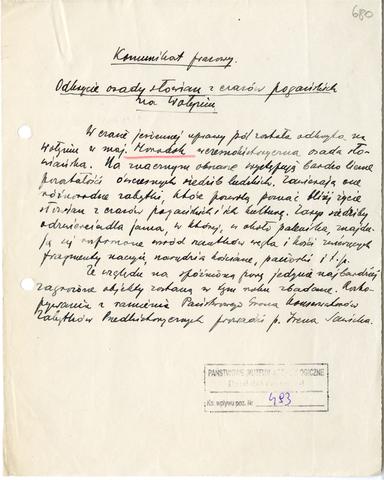 680
Komunikat prasowy.
Odkrycie osady słowian z czasów pogańskich
na Wołyniu
W czasie jesiennej uprawy pól została odkryta na
Wołyniu w maj. Horodok wczesnohistoryczna osada sło-
wiańska. Na znacznym obszarze występują bardzo liczne
pozostałości ówczesnych siedzib ludzkich. Zawierają one
różnorodne zabytki, które pozwolą poznać bliżej życie
słowian z czasów pogańskich i ich kulturę. Zarys siedziby
odzwierciedla jama, w której, w około paleniska, znajdu-
ją się wśród węgla i kości zwierzęcych
fragmenty naczyń, narzędzia kościane, paciorki i t. p.
Ze względu na spóźnioną porę jedynie najbardziej
zagrożone objekty zostaną w tym roku zbadane. Rozko-
pywania z ramienia Państwowego Grona Konserwatorów
Zabytków Przedhistorycznych prowadzi p. Irena Sawicka.
PAŃSTWOWE MUZEUM ARCHEOLOGICZNE
Ks. wpływu poz. Nr 493